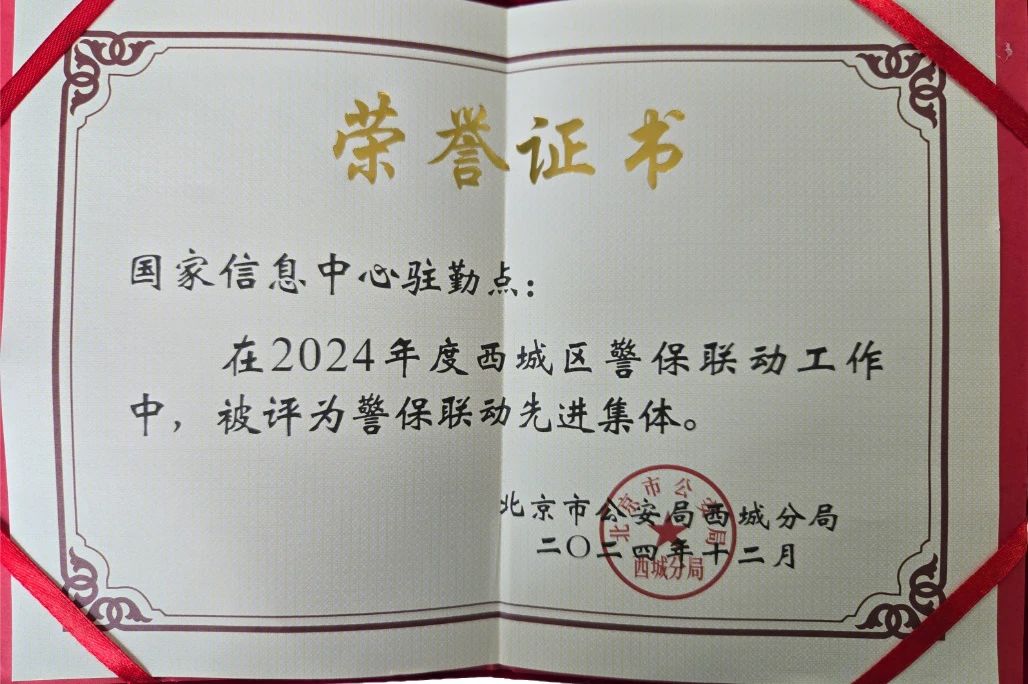 荣誉证书
国家信息中心驻勤点：
在2024年度西城区警保联动工作
中，被评为警保联动先进集体。
北京市公安局西城分局
二〇二四年十二月
北京市公安局
西城分局